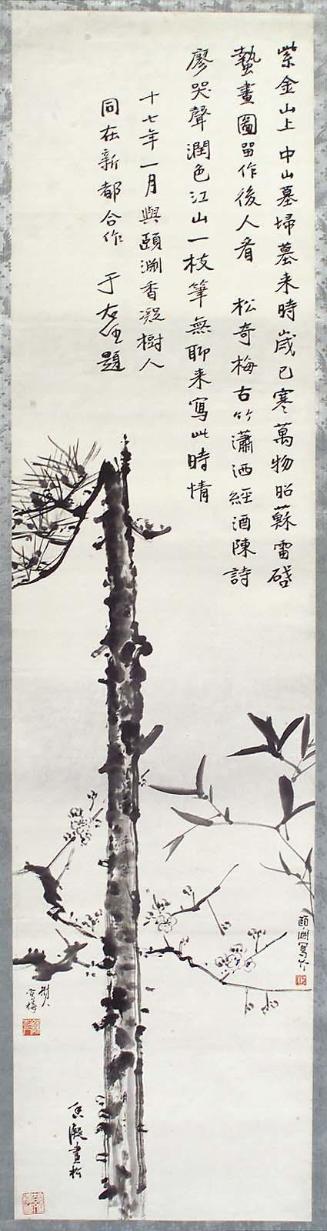 紫金山上中山墓掃墓來時歲已寒萬物昭蘇雷啟
蟄畫圖留作後人看 松奇梅古竹瀟洒經酒陳詩
廖哭聲潤色江山一枝筆無聊來寫此時情
十七年一月與頤淵香凝樹人
同在新都合作 于右任題
頤淵寫竹
樹人寫梅
香凝畫松